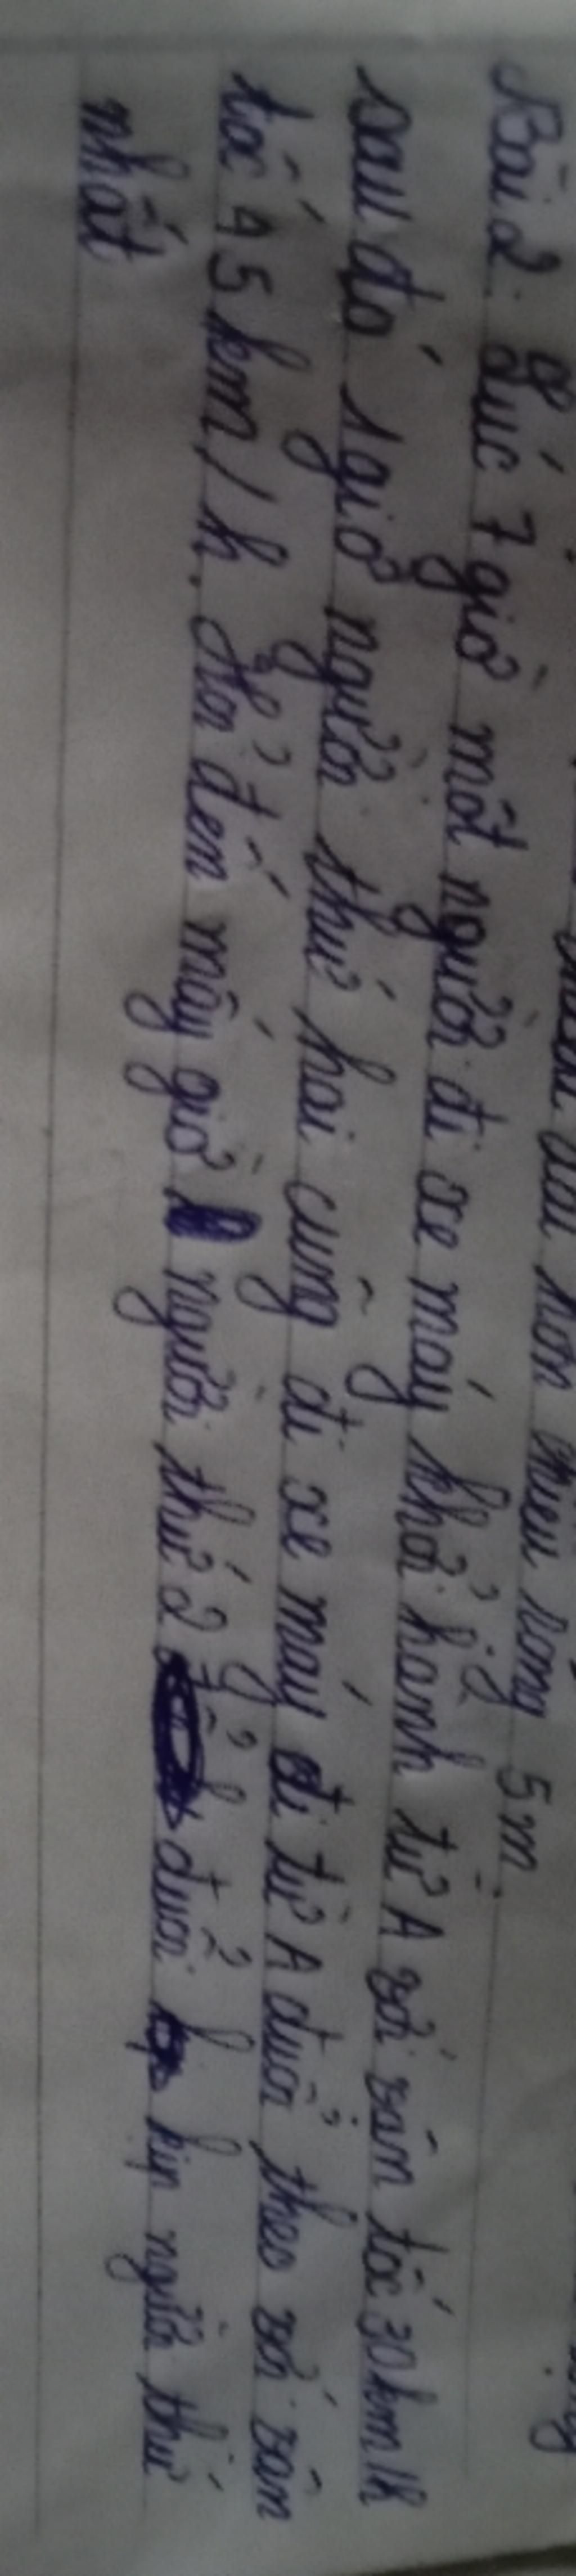 rộng 5m.
Bài 2. Lúc 7 giờ một người đi xe máy khởi hành từ A với vận tốc 30 km/h
sau đó 1 giờ người thứ hai cũng đi xe máy đi từ A đuổi theo với vận
tốc 45 km/h. Hỏi đến mấy giờ người thứ 2 đuổi kịp người thứ
nhất